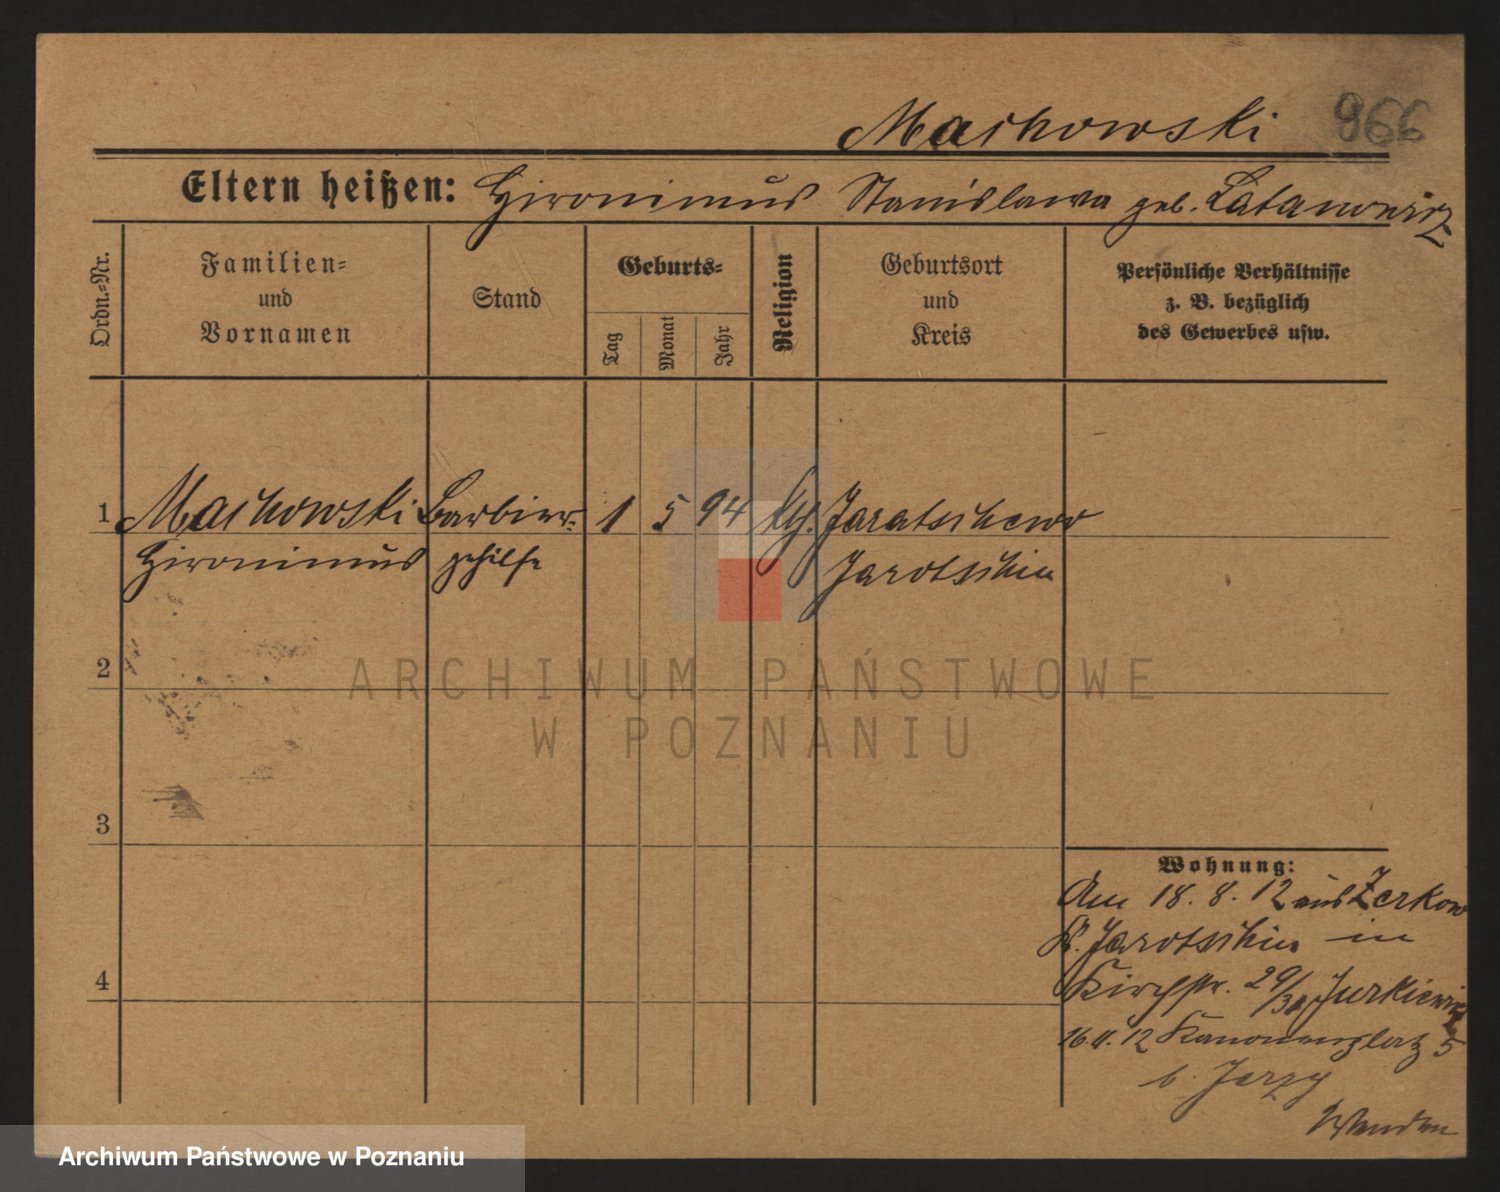 Machowski 966
Eltern heißen: Hironimus Stanislawa geb. Latanowicz
Ordn.=Nr.
Familien=
und
Vornamen
Stand
Geburts=
Tag
Monat
Jahr
Religion
Geburtsort
und
Kreis
Persönliche Verhältnisse
z. B. bezüglich
des Gewerbes usw.
1 Machowski Barbier= 1 5 94 kth. Jaratschewo
Hironimus gehilfe Jarotschin
2
3
4
Wohnung:
Am 18. 8. 12 aus Zerkow
Kr. Jarotschin in
Kirchstr. 29/30 Jurkiewicz
16.11.12 Kanonenplatz 5
b. Jerzy
ARCHIWUM PAŃSTWOWE
W POZNANIU
Archiwum Państwowe w Poznaniu